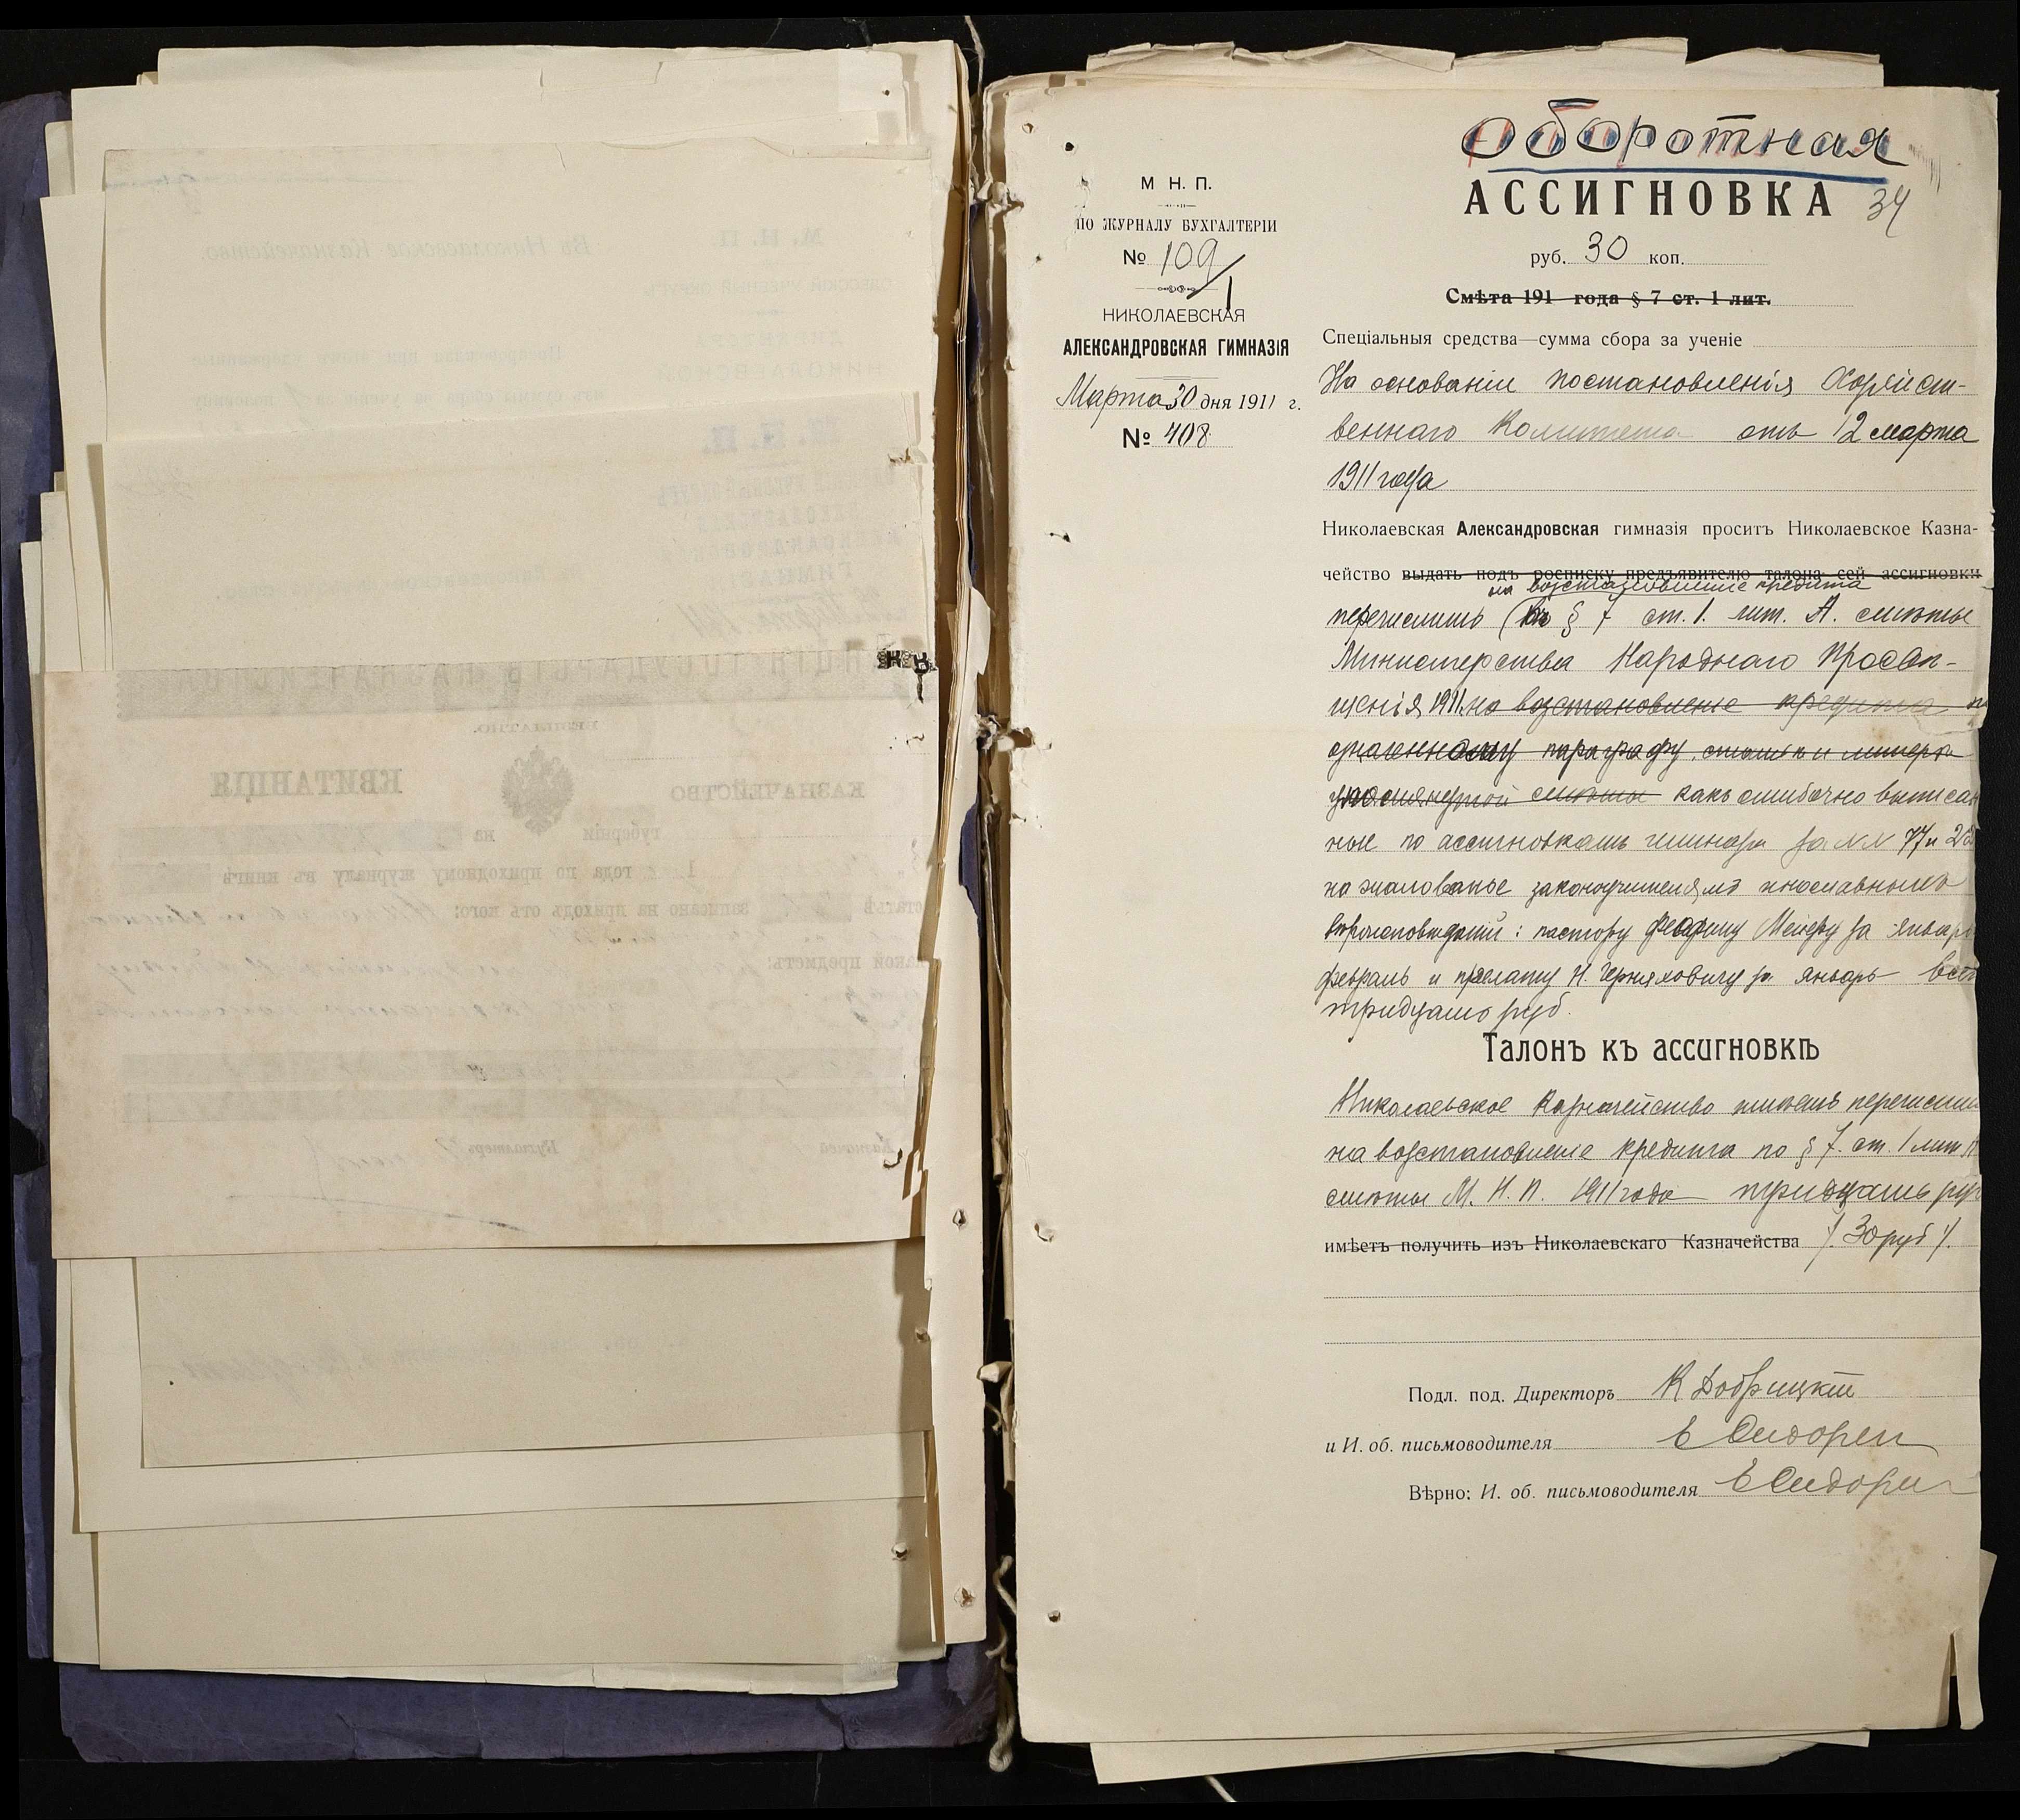 Оборотная
АССИГНОВКА 34
руб. 30 коп.
Смѣта 191 года § 7 ст. 1 лит.
М. Н. П.
ПО ЖУРНАЛУ БУХГАЛТЕРІИ
№ 109/1
НИКОЛАЕВСКАЯ
АЛЕКСАНДРОВСКАЯ ГИМНАЗІЯ
Марта 30 дня 1911 г.
№ 408
Спеціальныя средства—сумма сбора за ученіе
На основаніи постановленія Хозяйст-
веннаго Комитета отъ 12 марта
1911 года
Николаевская Александровская гимназія проситъ Николаевское Казна-
чейство выдать подъ росписку предъявителю талона сей ассигновки
на возстановленіе кредита
перечислить въ § 7 ст. 1. лит. А. смѣты
Министерства Народнаго Просвѣ-
щенія 1911 на возстановленіе кредита
означенному параграфу, статьѣ и литерѣ
упомянутой смѣты какъ ошибочно выписан
ные по ассигновкамъ гимназіи за №№ 77 и
на жалованье законоучителямъ инославныхъ
вѣроисповѣданій: пастору Мейеру за январь
февраль и прелату Н. Черняховичу за январь всего
тридцать руб.
Талонъ къ ассигновкѣ
Николаевское Казначейство имѣетъ перечислить
на возстановленіе кредита по § 7. ст. 1 лит А
смѣты М. Н. П. 1911 года тридцать руб
имѣетъ получить изъ Николаевскаго Казначейства /. 30 руб /.
Подл. под. Директоръ К Добрицкій
и И. об. письмоводителя Е Сидорен
Вѣрно: И. об. письмоводителя Е Сидорен